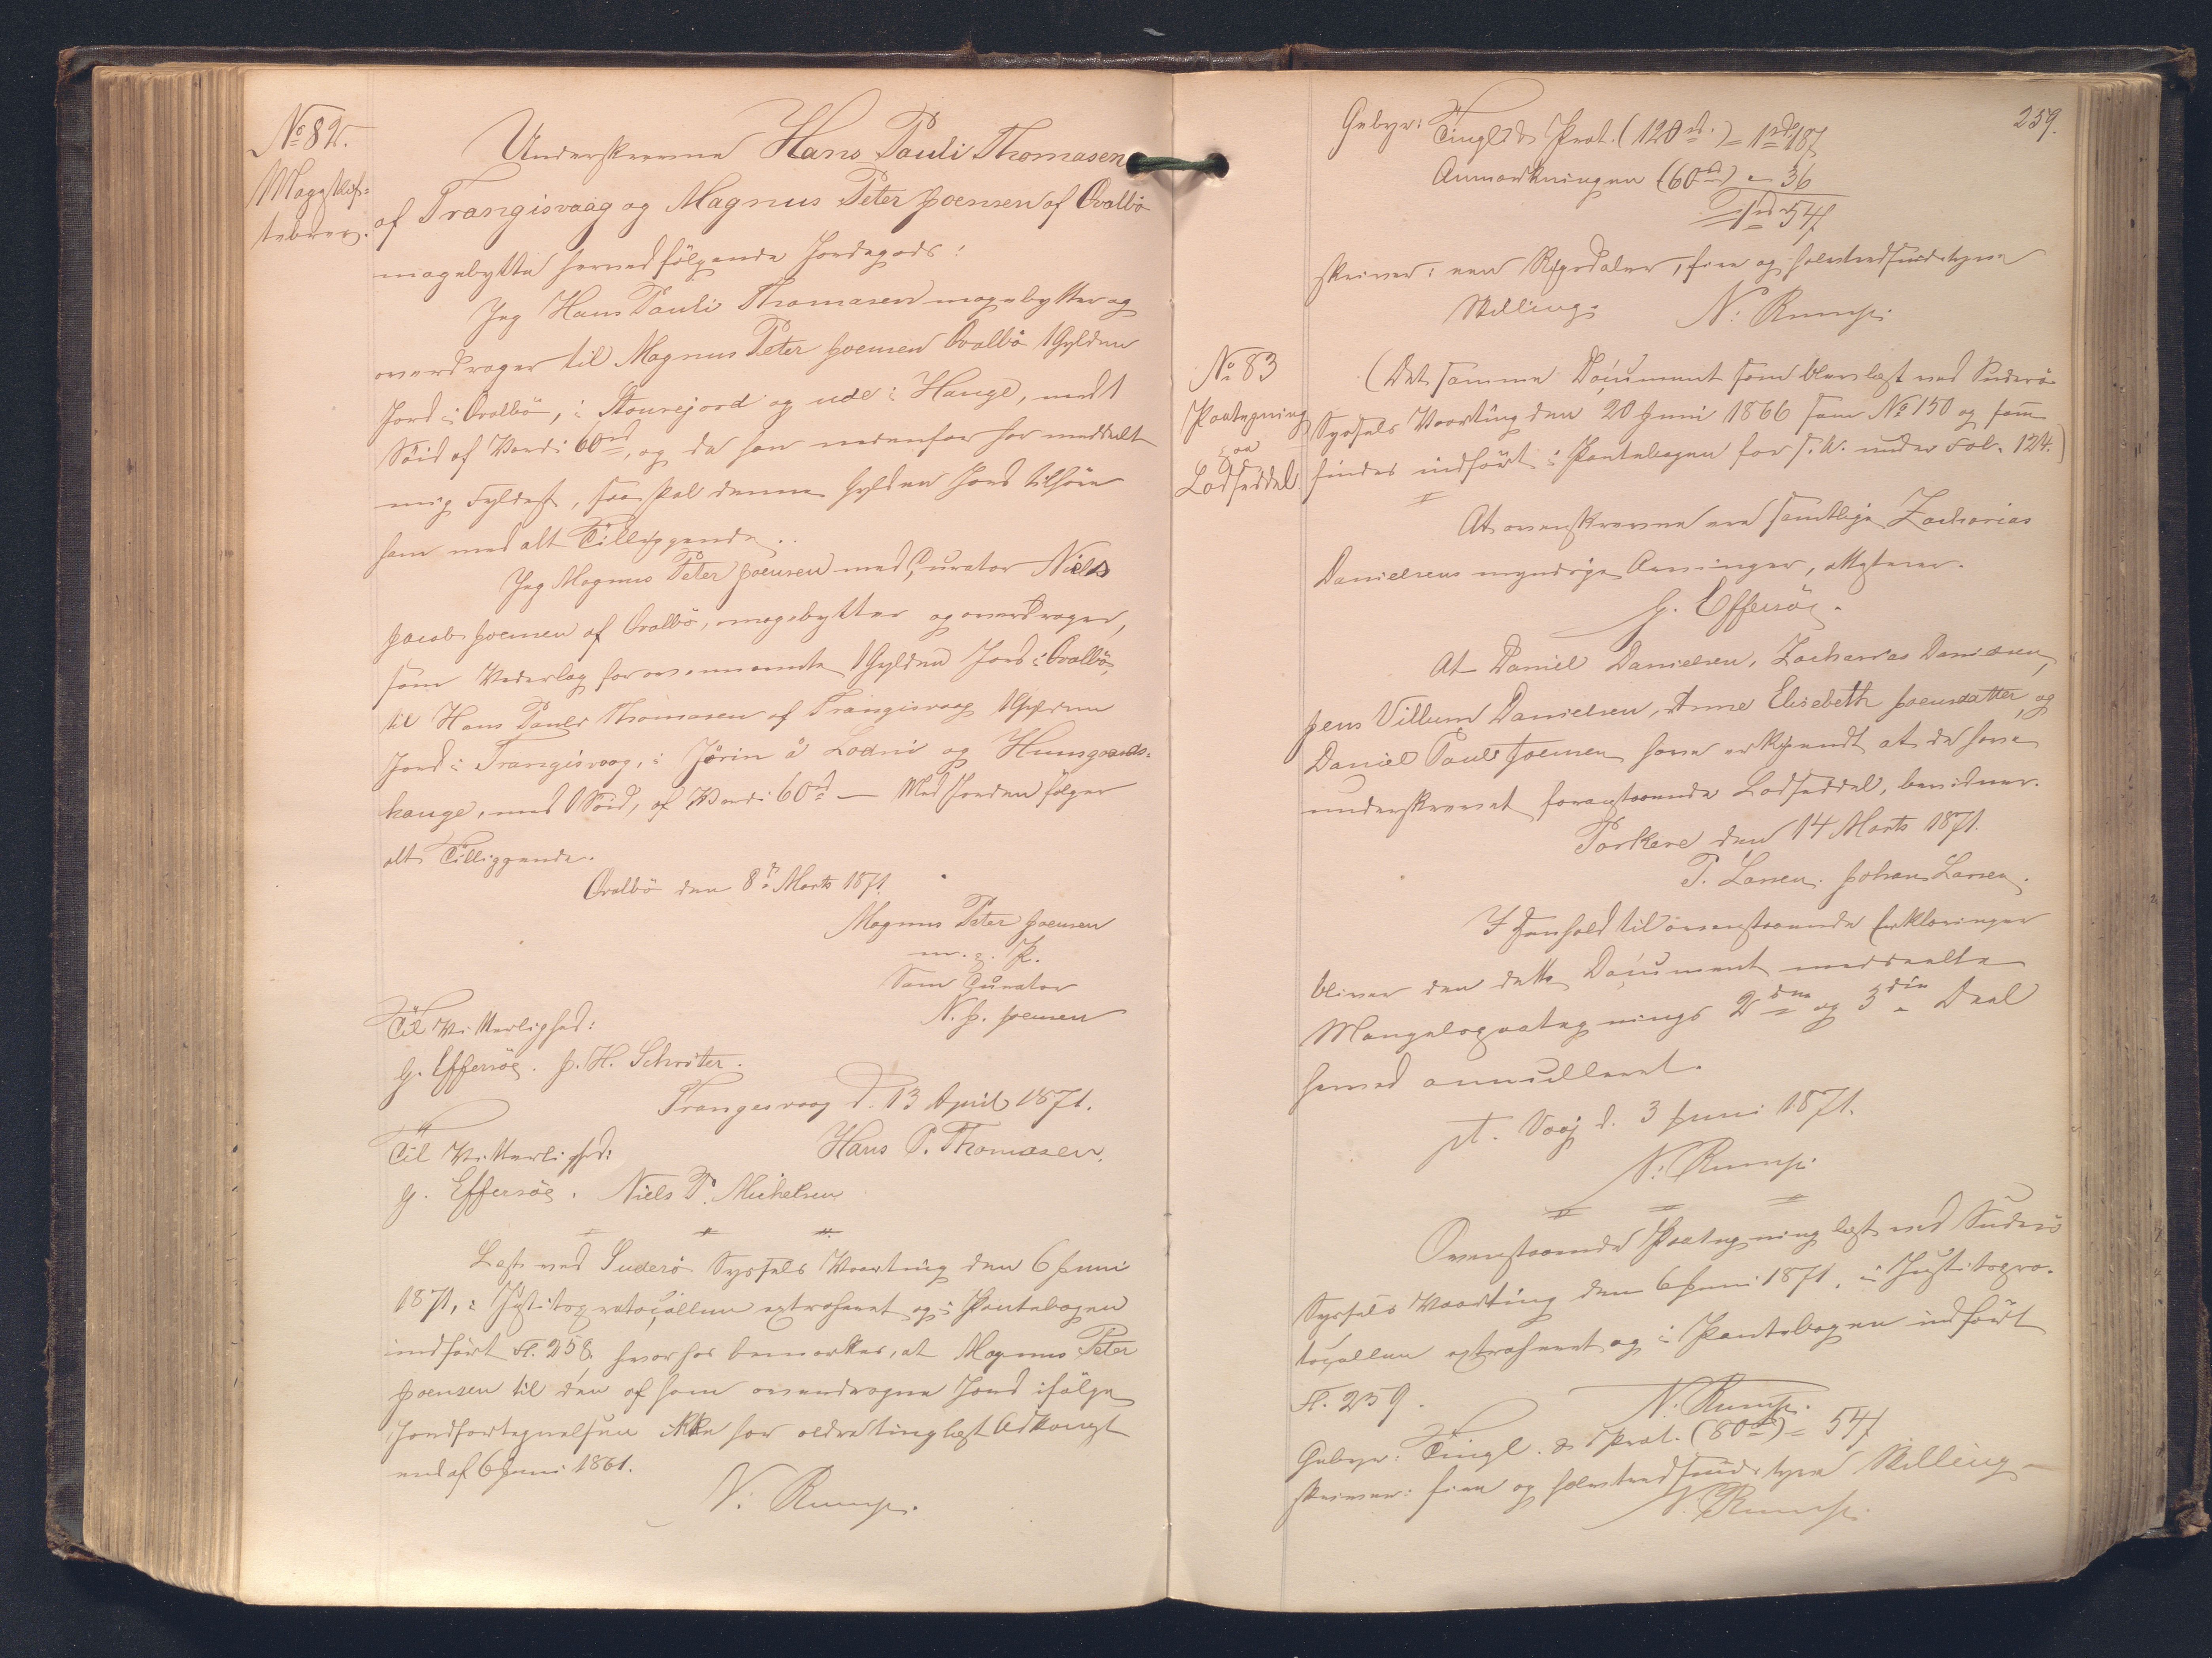 No 82.
Mageskif-
tebrev.
Underskrevne Hans Pauli Thomasen
af Trangisvaag og Magnus Peter Joensen af Qvalbö
magebytte herved fölgende Jordegods:
Jeg Hans Pauli Thomasen magebytter og
overdrager til Magnus Peter Joensen Qvalbö 1 Gylden
Jord i Qvalbö, i Stourejord og ude i Hauge, med 1
Söid af Værdi 60 rd, og da han nedenfor har meddelt
mig Fyldest, saa skal denne Gylden Jord tilhöre
ham med alt Tilliggende.
Jeg Magnus Peter Joensen med Curator Niels
Jacob Joensen af Qvalbö, magebytter og overdrager,
som Vederlag for ovennævnte 1 Gylden Jord i Qvalbö,
til Hans Pauli Thomasen af Trangisvaag 1 Gylden
Jord i Trangisvaag, i Jörin å Ladni og
hauge, med 1 Söid, af Værdi 60 rd — Med Jorden følger
alt Tilliggende.
Qvalbö den 8de Marts 1871.
Magnus Peter Joensen
m. f. P.
Som Curator
N. J. Joensen
Til Vitterlighed:
G. Effersöe. J. H. Schröter.
Trangesvaag d. 13 April 1871.
Til Vitterlighed:
Hans P. Thomasen.
G. Effersöe. Niels P. Michelsen
Læst ved Suderö Syssels Vaarting den 6 Juni
1871, i Justitsprotocollen extraheret og i Pantebogen
indfört Fl. 258, hvorhos bemærkes, at Magnus Peter
Joensen til den af ham overdragne Jord ifölge
Jordfortegnelsen ikke har ældre tinglæst Adkomst
end af 6 Juni 1861.
N: Rump.
259.
Gebyr: Tingl. & Prot. (120 rd.) = 1 rd 18 ß
Anmærkningen (60 rd) = 36
= 1 rd 54 ß
skriver: een Rigsdaler, fire og halvtredsindstyve
Skilling. N: Rump.
No 83
Paategning
paa
Lodseddel
(Det samme Document som blev læst ved Suderö
Syssels Vaarting den 20 Juni 1866 som No 150 og som
findes indfört i Pantebogen for s. A. under Fol. 124.)
At ovenskrevne ere samtlige Zacharias
Danielsens myndige Arvinger, attesteres.
G. Effersöe.
At Daniel Danielsen, Zacharias Danielsen,
Jens Villum Danielsen, Anne Elisebeth Joensdatter, og
Daniel Pauli Joensen have erkjendt at de have
underskrevet foranstaaende Lodseddel, bevidner.
Porkere den 14 Marts 1871.
P. Larsen. Johan Larsen.
I Henhold til ovenstaaende Erklæringer
bliver den dette Document meddeelte
Mangelspaategnings 2den og 3die Deel
herved annulleret.
pt. Vaag d. 3 Juni 1871.
N: Rump.
Ovenstaaende Paategning læst ved Suderö
Syssels Vaarting den 6 Juni 1871, i Justitspro-
tocollen extraheret og i Pantebogen indfört
Fl. 259.
N. Rump.
Gebyr: Tingl. & Prot. (80 rd) = 54 ß
skriver: fire og halvtredsindstyve Skilling
N. Rump.